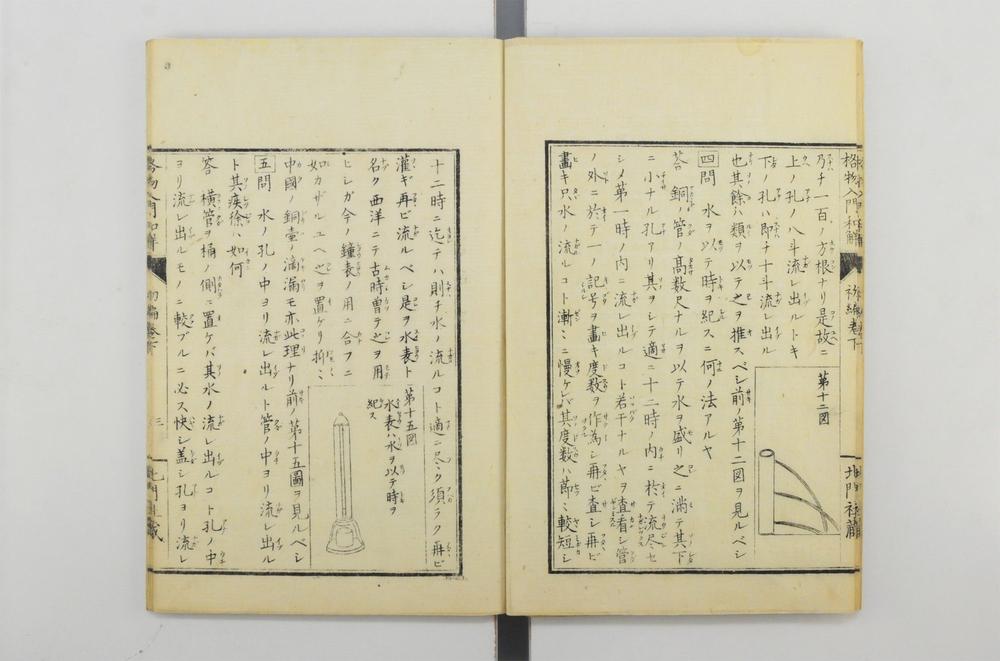 格物入門和解 初編巻下 北門社蔵
乃チ一百ノ方根ナリ是故ニ
上ノ孔ノ八斗流レ出ルトキ
下ノ孔ハ即チ十斗流レ出ル
也其餘ハ類ヲ以テ之ヲ推スベシ前ノ第十二図ヲ見ルベシ
第十二図
四問 水ヲ以テ時ヲ紀スニ何ノ法アルヤ
答 銅ノ管ノ高数尺ナルヲ以テ水ヲ盛リ之ニ満テ其下
ニ小ナル孔アリ其ヲシテ適ニ十二時ノ内ニ於テ流尽セ
シメ第一時ノ内ニ流レ出ルコト若干ナルヤヲ査看シ管
ノ外ニ於テ一ノ記号ヲ畫キ度数ヲ作為シ再ビ査シ再ビ
畫キ只水ノ流ルコト漸々ニ慢ケレバ其度数ハ節々較短シ
十二時ニ迄テハ則チ水ノ流ルコト適ニ尽ク須ラク再ビ
灌ギ再ビ流ルベシ是ヲ水表ト
名ク西洋ニテ古時曽テ之ヲ用
ヒシガ今ノ鐘表ノ用ニ合フニ
如カザルユヘ之ヲ置ケリ抑々
第十五図
水表ハ水ヲ以テ時ヲ
紀ス
中國ノ銅壷ノ滴漏モ亦此理ナリ前ノ第十五圖ヲ見ルベシ
五問 水ノ孔ノ中ヨリ流レ出ルト管ノ中ヨリ流レ出ル
ト其疾徐ハ如何
答 横管ヲ桶ノ側ニ置ケバ其水ノ流レ出ルコト孔ノ中
ヨリ流レ出ルモノニ較ブルニ必ス快シ盖シ孔ヨリ流レ
格物入門和解 初編巻下 三 北門社蔵